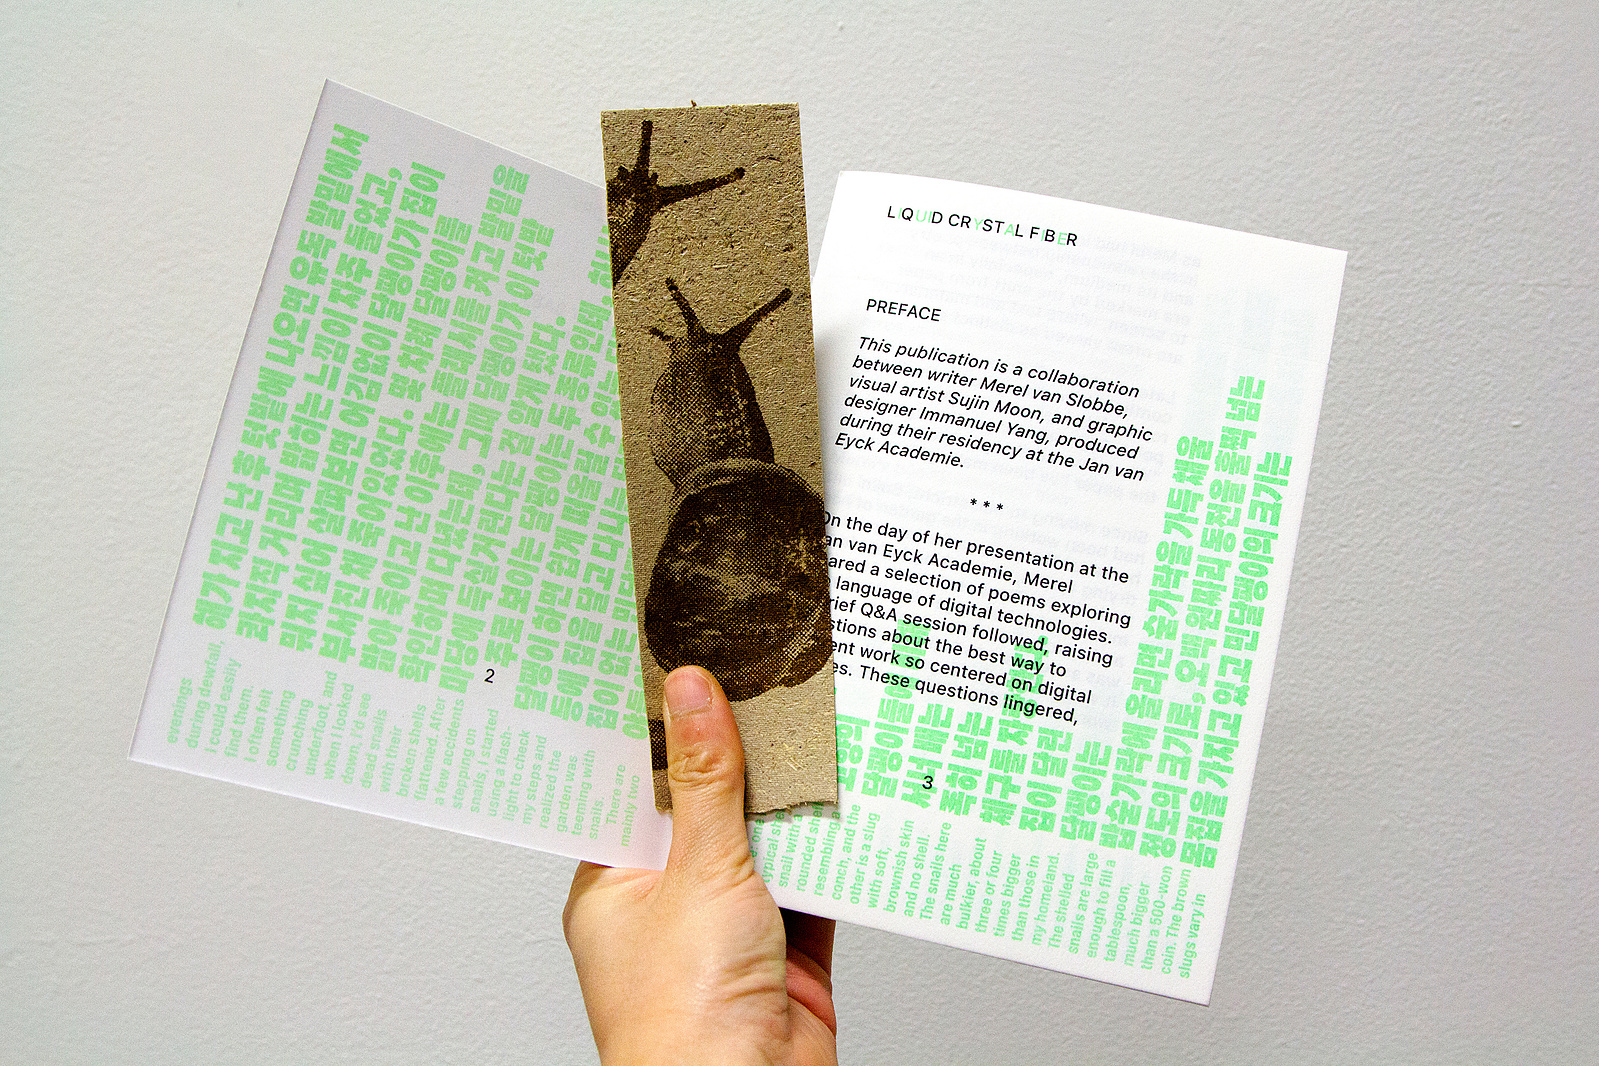 해가 지고 난 후 텃밭에 나오면 유독 발밑에서
콰지직 거리며 밟히는 느낌이 자주 들었고,
뭐지 싶어 살펴보면 어김없이 달팽이가 집이
부서진 채 죽어있었다. 몇 차례 달팽이를
밟아 죽이고 난 이후에는 플래시를 켜고 발밑을
확인하며 다녔는데, 그때 달팽이가 이 텃밭
마당에 득실거린다는 걸 알게 됐다.
주로 보이는 달팽이는 두 종류인데,
달팽이 하면 쉽게 떠올릴 수 있는
등에 집을 달고 다니는
집이 없는
evenings
during dewfall,
I could easily
find them.
I often felt
something
crunching
underfoot, and
when I looked
down, I'd see
dead snails
with their
broken shells
flattened. After
a few accidents
stepping on
snails, I started
using a flash-
light to check
my steps and
realized the
garden was
teeming with
snails.
There are
mainly two
2
LIQUID CRYSTAL FIBER
PREFACE
This publication is a collaboration
between writer Merel van Slobbe,
visual artist Sujin Moon, and graphic
designer Immanuel Yang, produced
during their residency at the Jan van
Eyck Academie.
* * *
On the day of her presentation at the
van Eyck Academie, Merel
a selection of poems exploring
language of digital technologies.
Q&A session followed, raising
about the best way to
work so centered on digital
These questions lingered,
달팽이들
서너 배는
족히 넘는
체구를
집이 달린
달팽이는
밥숟가락에 올리면 숟가락을 가득 채울
정도의 크기로, 오백 원짜리 동전을 훌쩍 넘는
몸집을 가지고 있고 민달팽이의 크기는
3
one
typical
snail with a
rounded shell
resembling a
conch, and the
other is a slug
with soft,
brownish skin
and no shell.
The snails here
are much
bulkier, about
three or four
times bigger
than those in
my homeland.
The shelled
snails are large
enough to fill a
tablespoon,
much bigger
than a 500-won
coin. The brown
slugs vary in